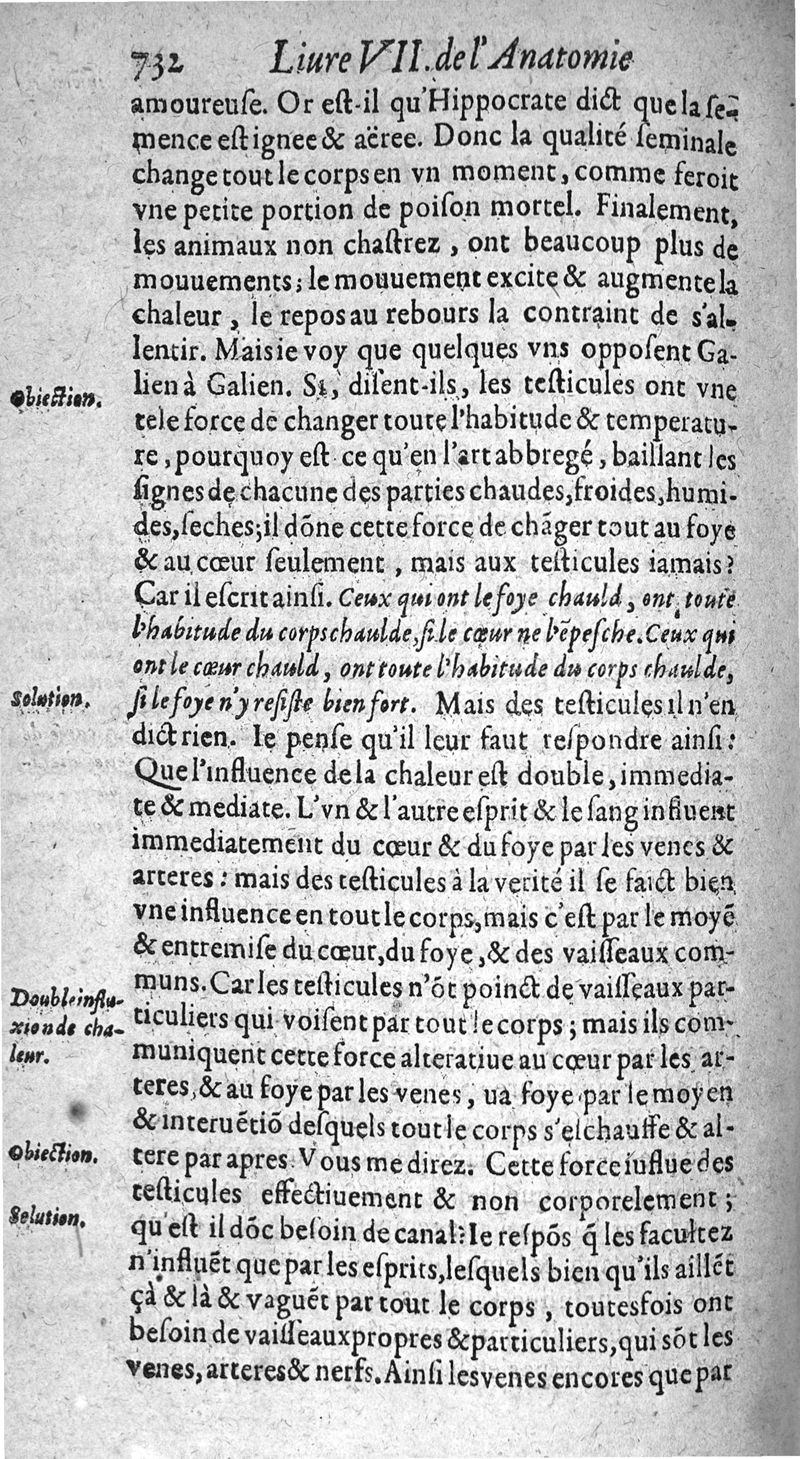 732 Liure VII. de l'Anatomie
amoureuſe. Or eſt-il qu'Hippocrate dict que la ſe-
mence eſt ignee & aëree. Donc la qualité ſeminale
change tout le corps en vn moment, comme feroit
vne petite portion de poiſon mortel. Finalement,
les animaux non chaſtrez, ont beaucoup plus de
mouuements; le mouuement excite & augmente la
chaleur, le repos au rebours la contraint de s'al-
lentir. Mais ie voy que quelques vns oppoſent Ga-
lien à Galien. Si, diſent-ils, les teſticules ont vne
Obiection.
tele force de changer toute l'habitude & temperatu-
re, pourquoy eſt ce qu'en l'art abbregé, baillant les
ſignes de chacune des parties chaudes, froides, humi-
des, ſeches; il dōne cette force de chāger tout au foye
& au cœur ſeulement, mais aux teſticules iamais?
Car il eſcrit ainſi. Ceux qui ont le foye chauld, ont toute
l'habitude du corps chaulde, ſi le cœur ne l'ēpeſche. Ceux qui
ont le cœur chauld, ont toute l'habitude du corps chaulde,
Solution.
ſi le foye n'y reſiſte bien fort. Mais des teſticules il n'en
dict rien. Ie penſe qu'il leur faut reſpondre ainſi:
Que l'influence de la chaleur eſt double, immedia-
te & mediate. L'vn & l'autre eſprit & le ſang influent
immediatement du cœur & du foye par les venes &
arteres: mais des teſticules à la verité il ſe faict bien
vne influence en tout le corps, mais c'eſt par le moyē
& entremiſe du cœur, du foye, & des vaiſſeaux com-
muns. Car les teſticules n'ōt poinct de vaiſſeaux par-
Double influ-
xion de cha-
leur.
ticuliers qui voiſent par tout le corps; mais ils com-
muniquent cette force alteratiue au cœur par les ar-
teres, & au foye par les venes, ua foye par le moyen
& interuētiō deſquels tout le corps s'eſchauffe & al-
Obiection.
tere par apres. Vous me direz. Cette force influe des
teſticules effectiuement & non corporelement;
Solution.
qu'eſt il dōc beſoin de canal? Ie reſpōs q̄ les facultez
n'influēt que par les eſprits, leſquels bien qu'ils aillēt
çà & là & vaguēt par tout le corps, toutesfois ont
beſoin de vaiſſeaux propres & particuliers, qui sōt les
venes, arteres & nerfs. Ainſi les venes encores que par